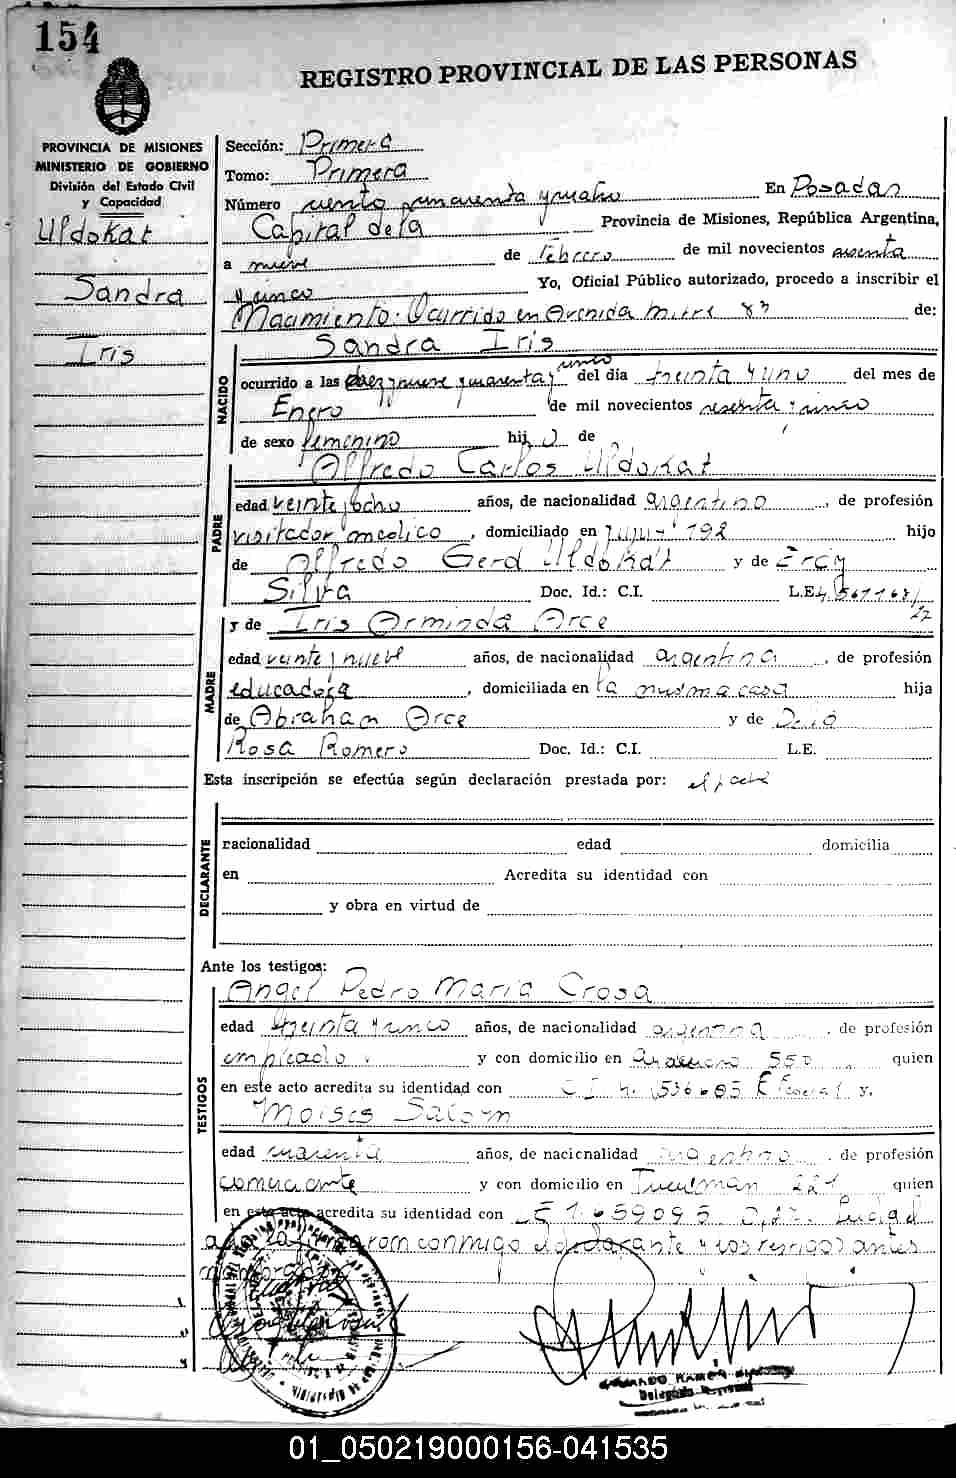 154
REGISTRO PROVINCIAL DE LAS PERSONAS
PROVINCIA DE MISIONES
MINISTERIO DE GOBIERNO
División del Estado Civil
y Capacidad
Uldokat
Sandra
Iris
Sección: Primera
Tomo: Primera
Número ciento cincuenta y cuatro En Posadas
Capital de la Provincia de Misiones, República Argentina,
a nueve de febrero de mil novecientos sesenta
y cinco Yo, Oficial Público autorizado, procedo a inscribir el
Nacimiento. Ocurrido en Avenida Mitre 83 de:
NACIDO
Sandra Iris
ocurrido a las diez y nueve y cuarenta y cinco del día treinta y uno del mes de
Enero de mil novecientos sesenta y cinco
de sexo femenino hij a de
PADRE
Alfredo Carlos Uldokat
edad veinte y ocho años, de nacionalidad argentino, de profesión
visitador medico, domiciliado en Jujuy 192 hijo
de Alfredo Gerd Uldokat y de Ercy
Silva Doc. Id.: C.I. L.E.
y de Iris Orminda Arce
MADRE
edad veinte y nueve años, de nacionalidad argentina, de profesión
educadora, domiciliada en la misma casa hija
de Abraham Arce y de
Rosa Romero Doc. Id.: C.I. L.E.
Esta inscripción se efectúa según declaración prestada por: el padre
DECLARANTE
racionalidad edad domicilia
en Acredita su identidad con
y obra en virtud de
Ante los testigos:
TESTIGOS
Angel Pedro Maria Crosa
edad treinta y cinco años, de nacionalidad argentina, de profesión
empleado y con domicilio en Ayacucho 550 quien
en este acto acredita su identidad con C.I. n. P. Federal y.
Moises Salom
edad cuarenta años, de nacicnalidad argentino, de profesión
comerciante y con domicilio en Tucuman 221 quien
en este acto acredita su identidad con
conmigo el declarante y los testigos antes
Delegado
01_050219000156-041535